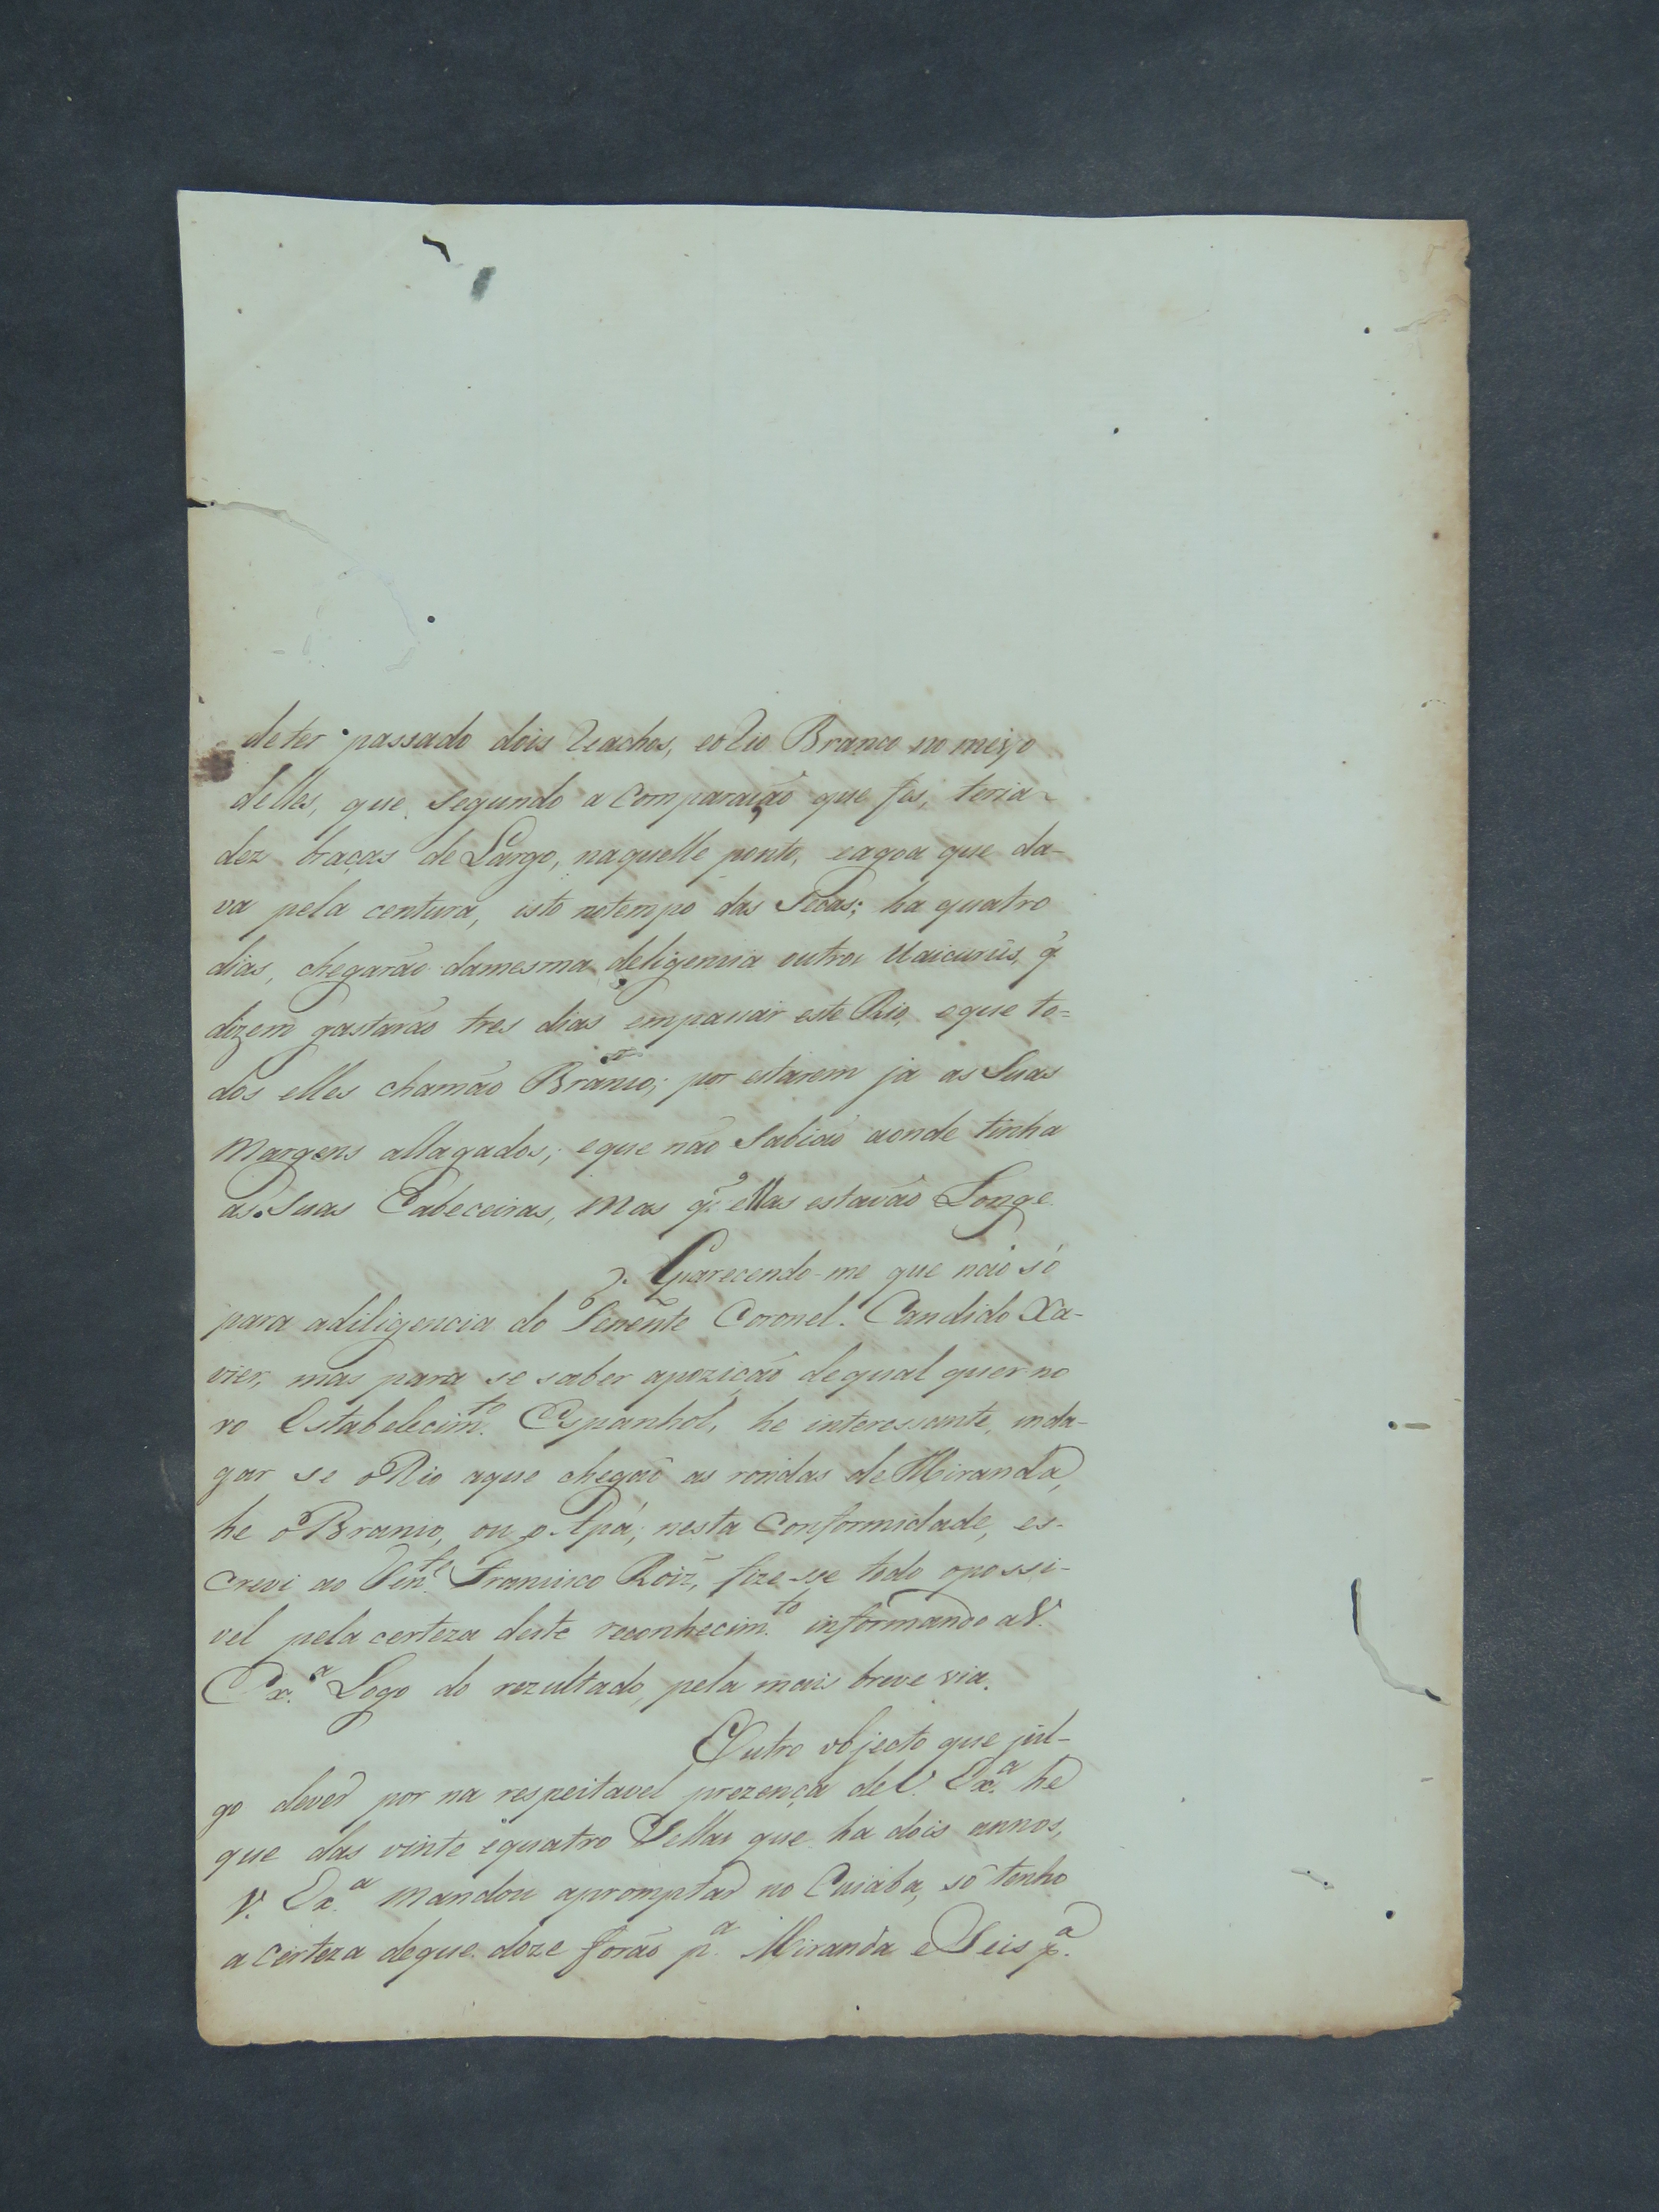 deter passado dois Reachos, eo Rio Branco no meiyo
delles, que segundo a Comparaição que fes, teria
dez braças de Largo, naquelle ponto, eagoa que da-
va pela centura, isto notempo das Secas; ha quatro
dias, chegarão damesma deligencia outros Uaicurús, q̃
dizem gastarão tres dias empassar este Rio, eque to=
dos elles chamão Branco; por estarem ja as Suas
Margens allagados; eque não Sabião aonde tinha
as Suas Cabeceiras, Mas q̃ ellas estavão Longe.
Parecendo-me que não só
para adiligencia do Tenente Coronel Candido Xa-
vier, mas para se saber apozição dequal quer no
vo Estabelecim.to Espanhol, he interessante, inda-
gar se o Rio aque chegão as rondas de Miranda,
he o Branco, ou o Apá; nesta Conformidade, es-
crevi ao Ten.te Francisco Roiz, fizesse todo opossi-
vel pela certeza deste reconhecim.to informando aV.
Ex.a Logo do rezultado, pela mais breve via.
Outro objecto que jul-
go dever por na respeitavel prezença deV. Ex.a he
que das vinte equatro Sellas que ha dois annos,
V. Ex.a Mandou apromptar no Cuiaba, só tenho
a certeza deque doze forão p.a Miranda e Seis p.a